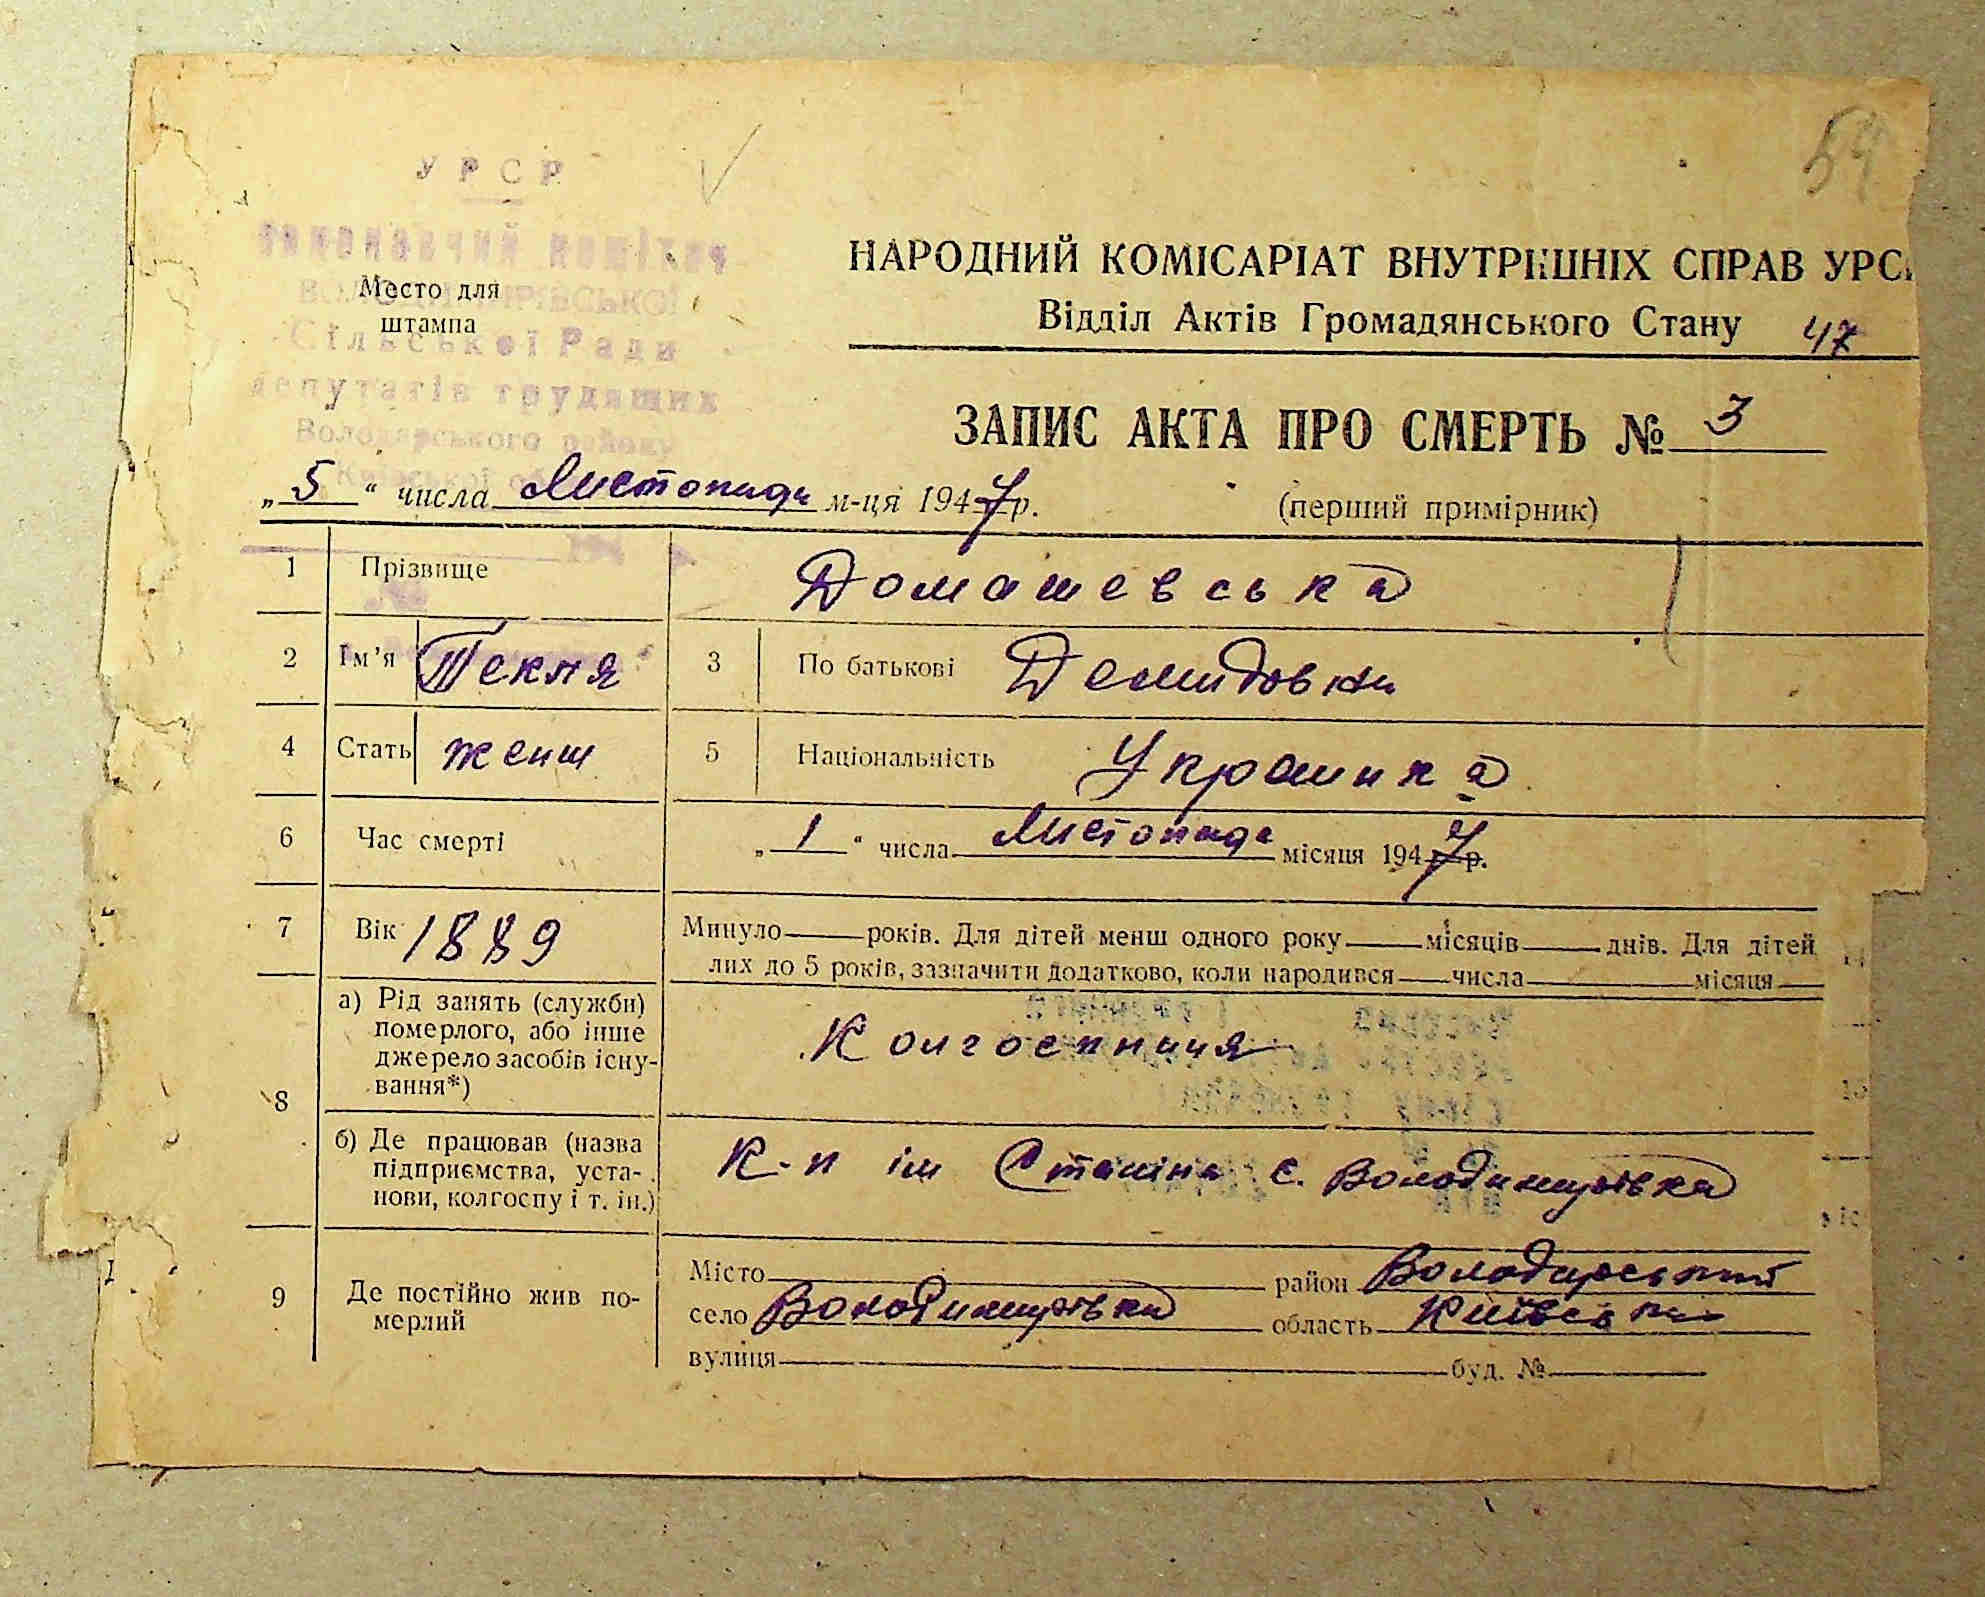 54
УРСР
виконавчий комітет
ВОЛОДИМИРІВСЬКОЇ
Сільської Ради
депутатів трудящих
Володарського району
Київської
Место для
штампа
НАРОДНИЙ КОМІСАРІАТ ВНУТРІШНІХ СПРАВ УРС
Відділ Актів Громадянського Стану 47
ЗАПИС АКТА ПРО СМЕРТЬ № 3
„5“ числа Листопада м-ця 1947р. (перший примірник)
1 Прізвище Домашевська
2 Ім'я Текля 3 По батькові Демидовна
4 Стать женш 5 Національність Українка
6 Час смерті „1“ числа Листопада місяця 1947р.
7 Вік 1889 Минуло — років. Для дітей менш одного року — місяців — днів. Для дітей
лих до 5 років, зазначити додатково, коли народився — числа — місяця —
8 а) Рід занять (служби)
померлого, або інше
джерело засобів існу-
вання*)
Колгоспниця
б) Де працював (назва
підприємства, уста-
нови, колгоспу і т. ін.)
К-п ім Сталіна с. Володимирівка
9 Де постійно жив по-
мерлий
Місто район Володарський
село Володимирівка область Київська
вулиця буд. №